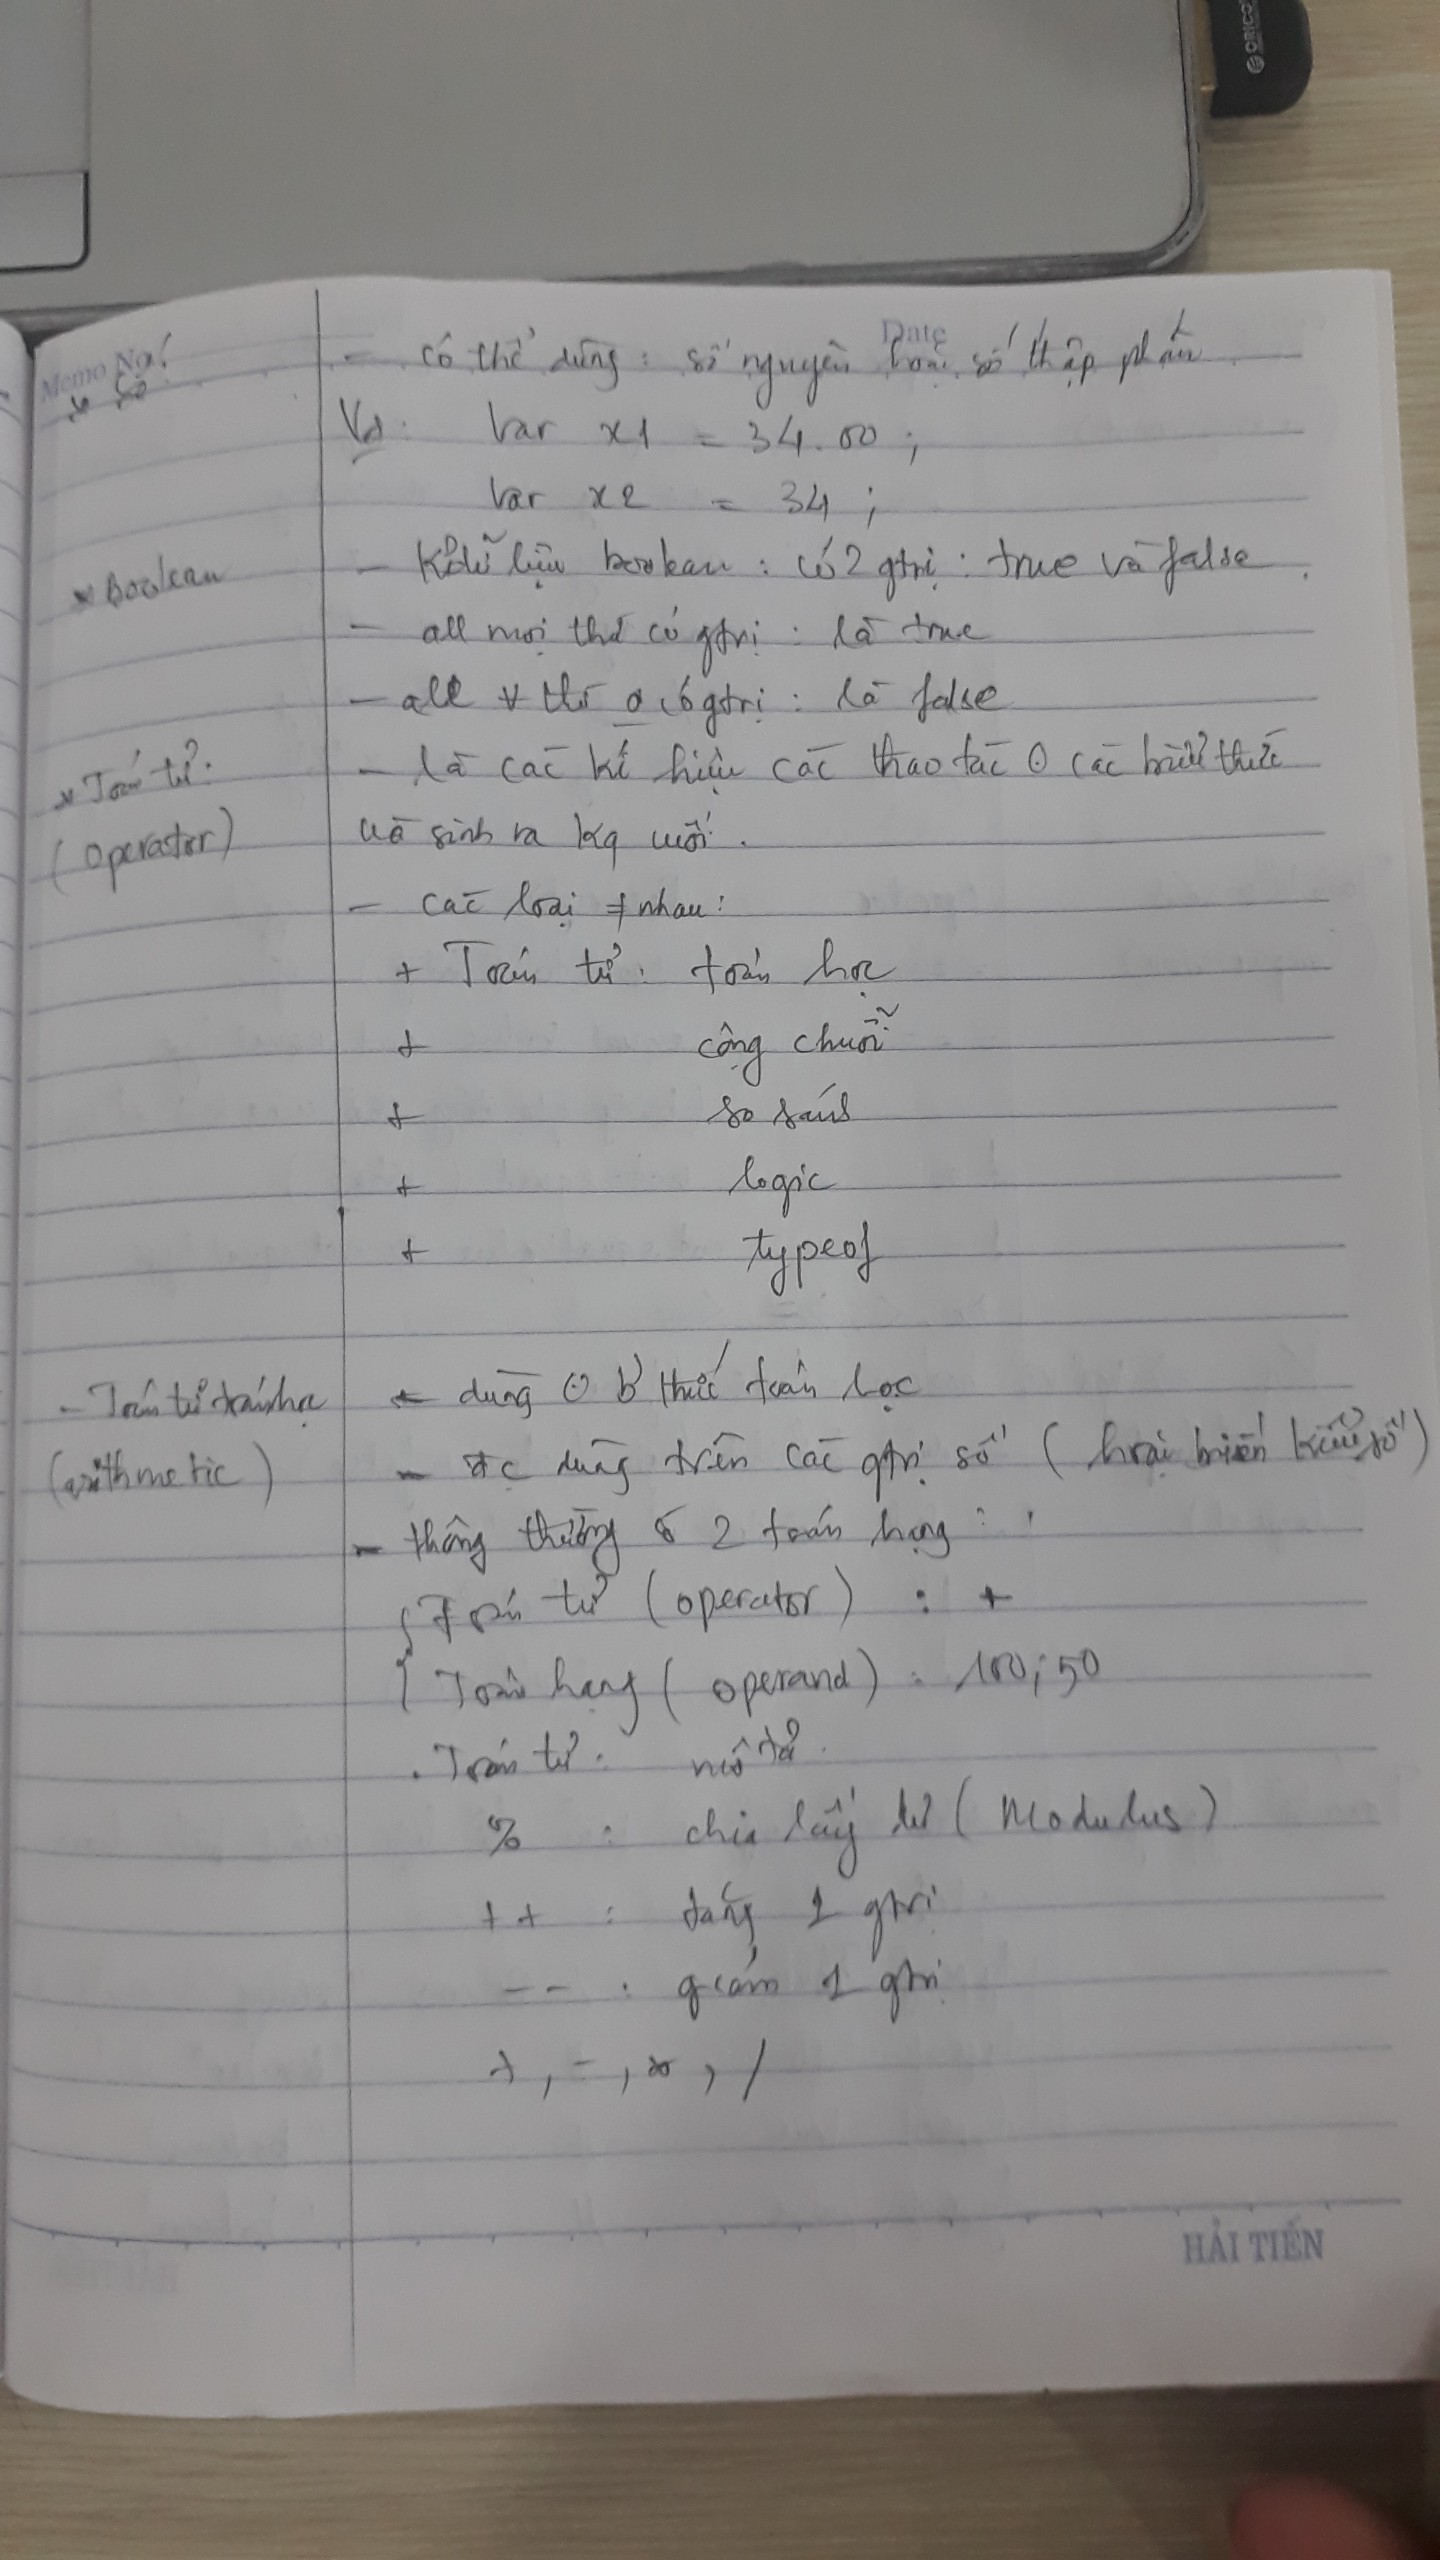 Memo No.
Date
* Số
- Có thể dùng : số nguyên hoặc số thập phân
Vd : Var x1 = 34.00 ;
Var x2 = 34 ;
* Boolean
- Kdữ liệu boolean : có 2 gtrị : true và false .
- all mọi thứ có gtrị : là true
- all ∀ thứ có gtrị : là false
* Toán tử :
(Operastor)
- là các kí hiệu các thao tác các biểu thức
và sinh ra kq cuối .
- Các loại ≠ nhau :
+ Toán tử : toán học
+ cộng chuỗi
+ so sánh
+ logic
+ typeof
- Toán tử toán học
(arithmetic)
- dùng b' thức toán học
- đc dùng trên các gtrị số (hoặc biến kiểu số)
- thông thường có 2 toán hạng :
{ Toán tử (operator) : +
Toán hạng (operand) : 100 ; 50
. Toán tử : mô tả
% : chia lấy dư (Modulus)
++ : tăng 1 gtrị
-- : giảm 1 gtrị
+ , - , * , /
HẢI TIẾN
ORICO